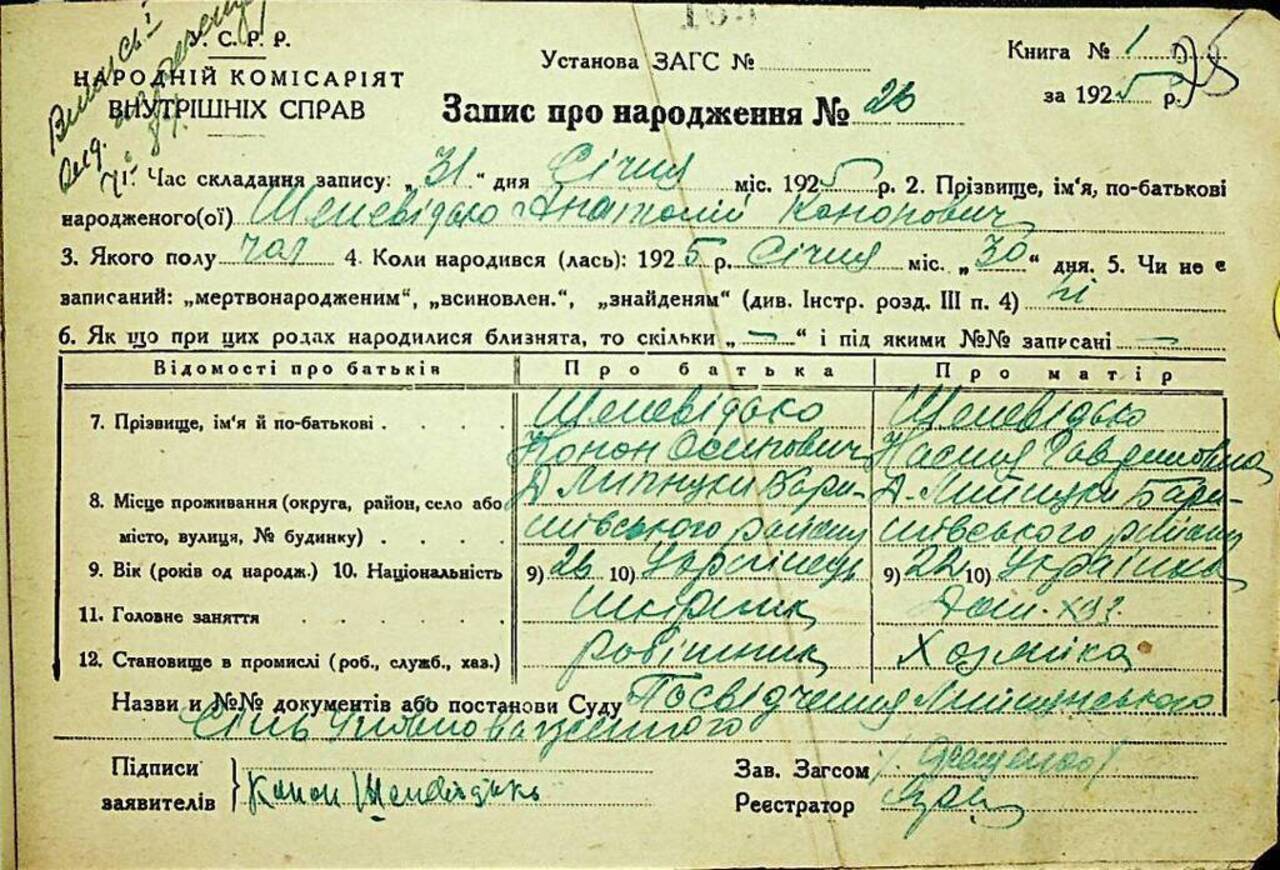 У.С.Р.Р.
НАРОДНІЙ КОМІСАРІЯТ
ВНУТРІШНІХ СПРАВ
Установа ЗАГС №
Книга № 1
за 1925 р.
95
Запис про народження № 26
1. Час складання запису: „31“ дня Січня міс. 1925 р. 2. Прізвище, ім‘я, по-батькові
народженого(ої) Шелевідько Анатолій Кононович
3. Якого полу чол 4. Коли народився (лась): 1925 р. Січня міс. „30“ дня. 5. Чи не є
записаний: „мертвонародженим“, „всиновлен.“, „знайденям“ (див. Інстр. розд. III п. 4) ні
6. Як що при цих родах народилися близнята, то скільки „—“ і під якими №№ записані —
Відомості про батьків Про батька Про матір
7. Прізвище, ім‘я й по-батькові . . . . Шелевідько Конон Осипович Шелевідько Настя Гаврилівна
8. Місце проживання (округа, район, село або Д Липнуки Бари- Д. Липнуки Бари-
місто, вулиця, № будинку) . . . . шівського району шівського району
9. Вік (років од народж.) 10. Національність 9) 26 10) Українець 9) 22 10) Українка
11. Головне заняття . . . . . . Шкірник Дом. хаз.
12. Становище в промислі (роб., служб., хаз.) робітник Хозяйка
Назви и №№ документів або постанови Суду Посвідчення
Сіль Уповноваженого
Підписи
заявителів } Конон
Зав. Загсом
Реєстратор